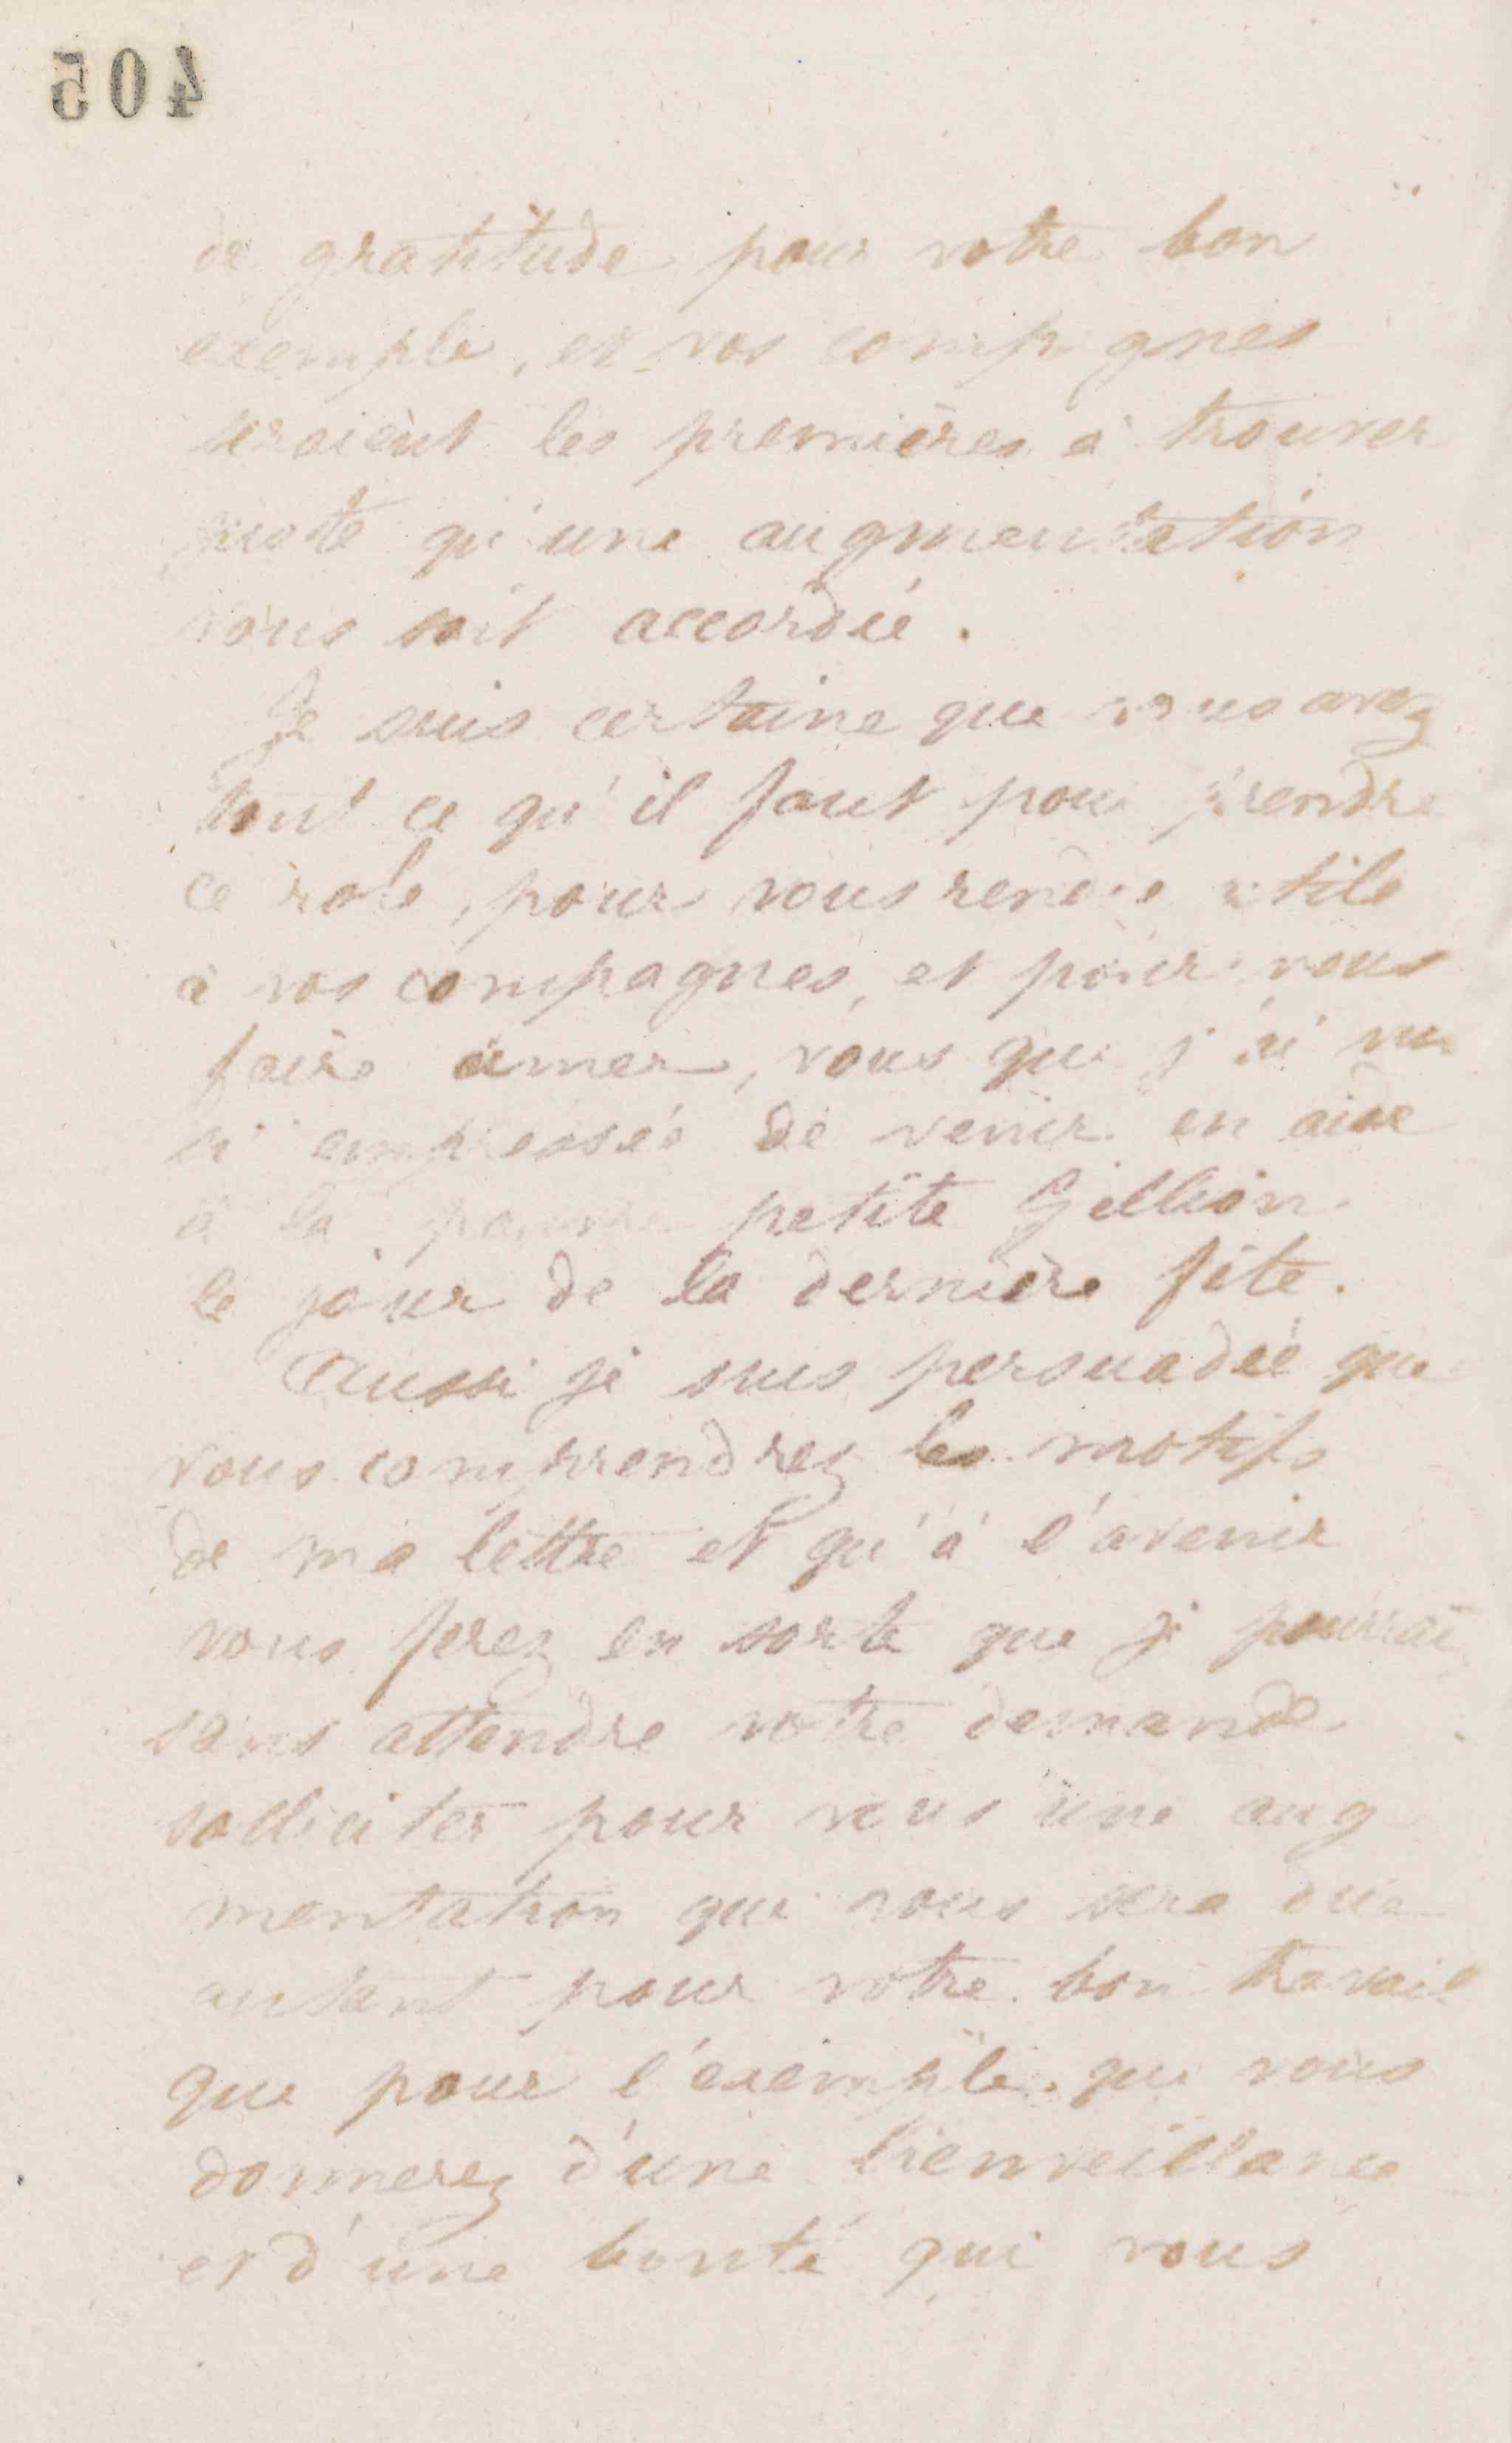 405
de gratitude pour votre bon
exemple, et vos compagnes
seraient les premières à trouver
juste qu'une augmentation
vous soit accordée.
Je suis certaine que vous avez
tout ce qu'il faut pour prendre
ce role, pour vous rendre utile
à vos compagnes, et pour vous
faire aimer, vous que j'ai vu
si empressée de venir en aide
à la pauvre petite Gellion
le jour de la dernière fête.
Aussi je suis persuadée que
vous comprendrez les motifs
de ma lettre et qu'à l'avenir
vous ferez en sorte que je pourrai
sans attendre votre demande
solliciter pour vous une aug
mentation qui vous sera due
autant pour votre bon travail
que pour l'exemple que vous
donnerez d'une bienveillance
et d'une bonté qui vous